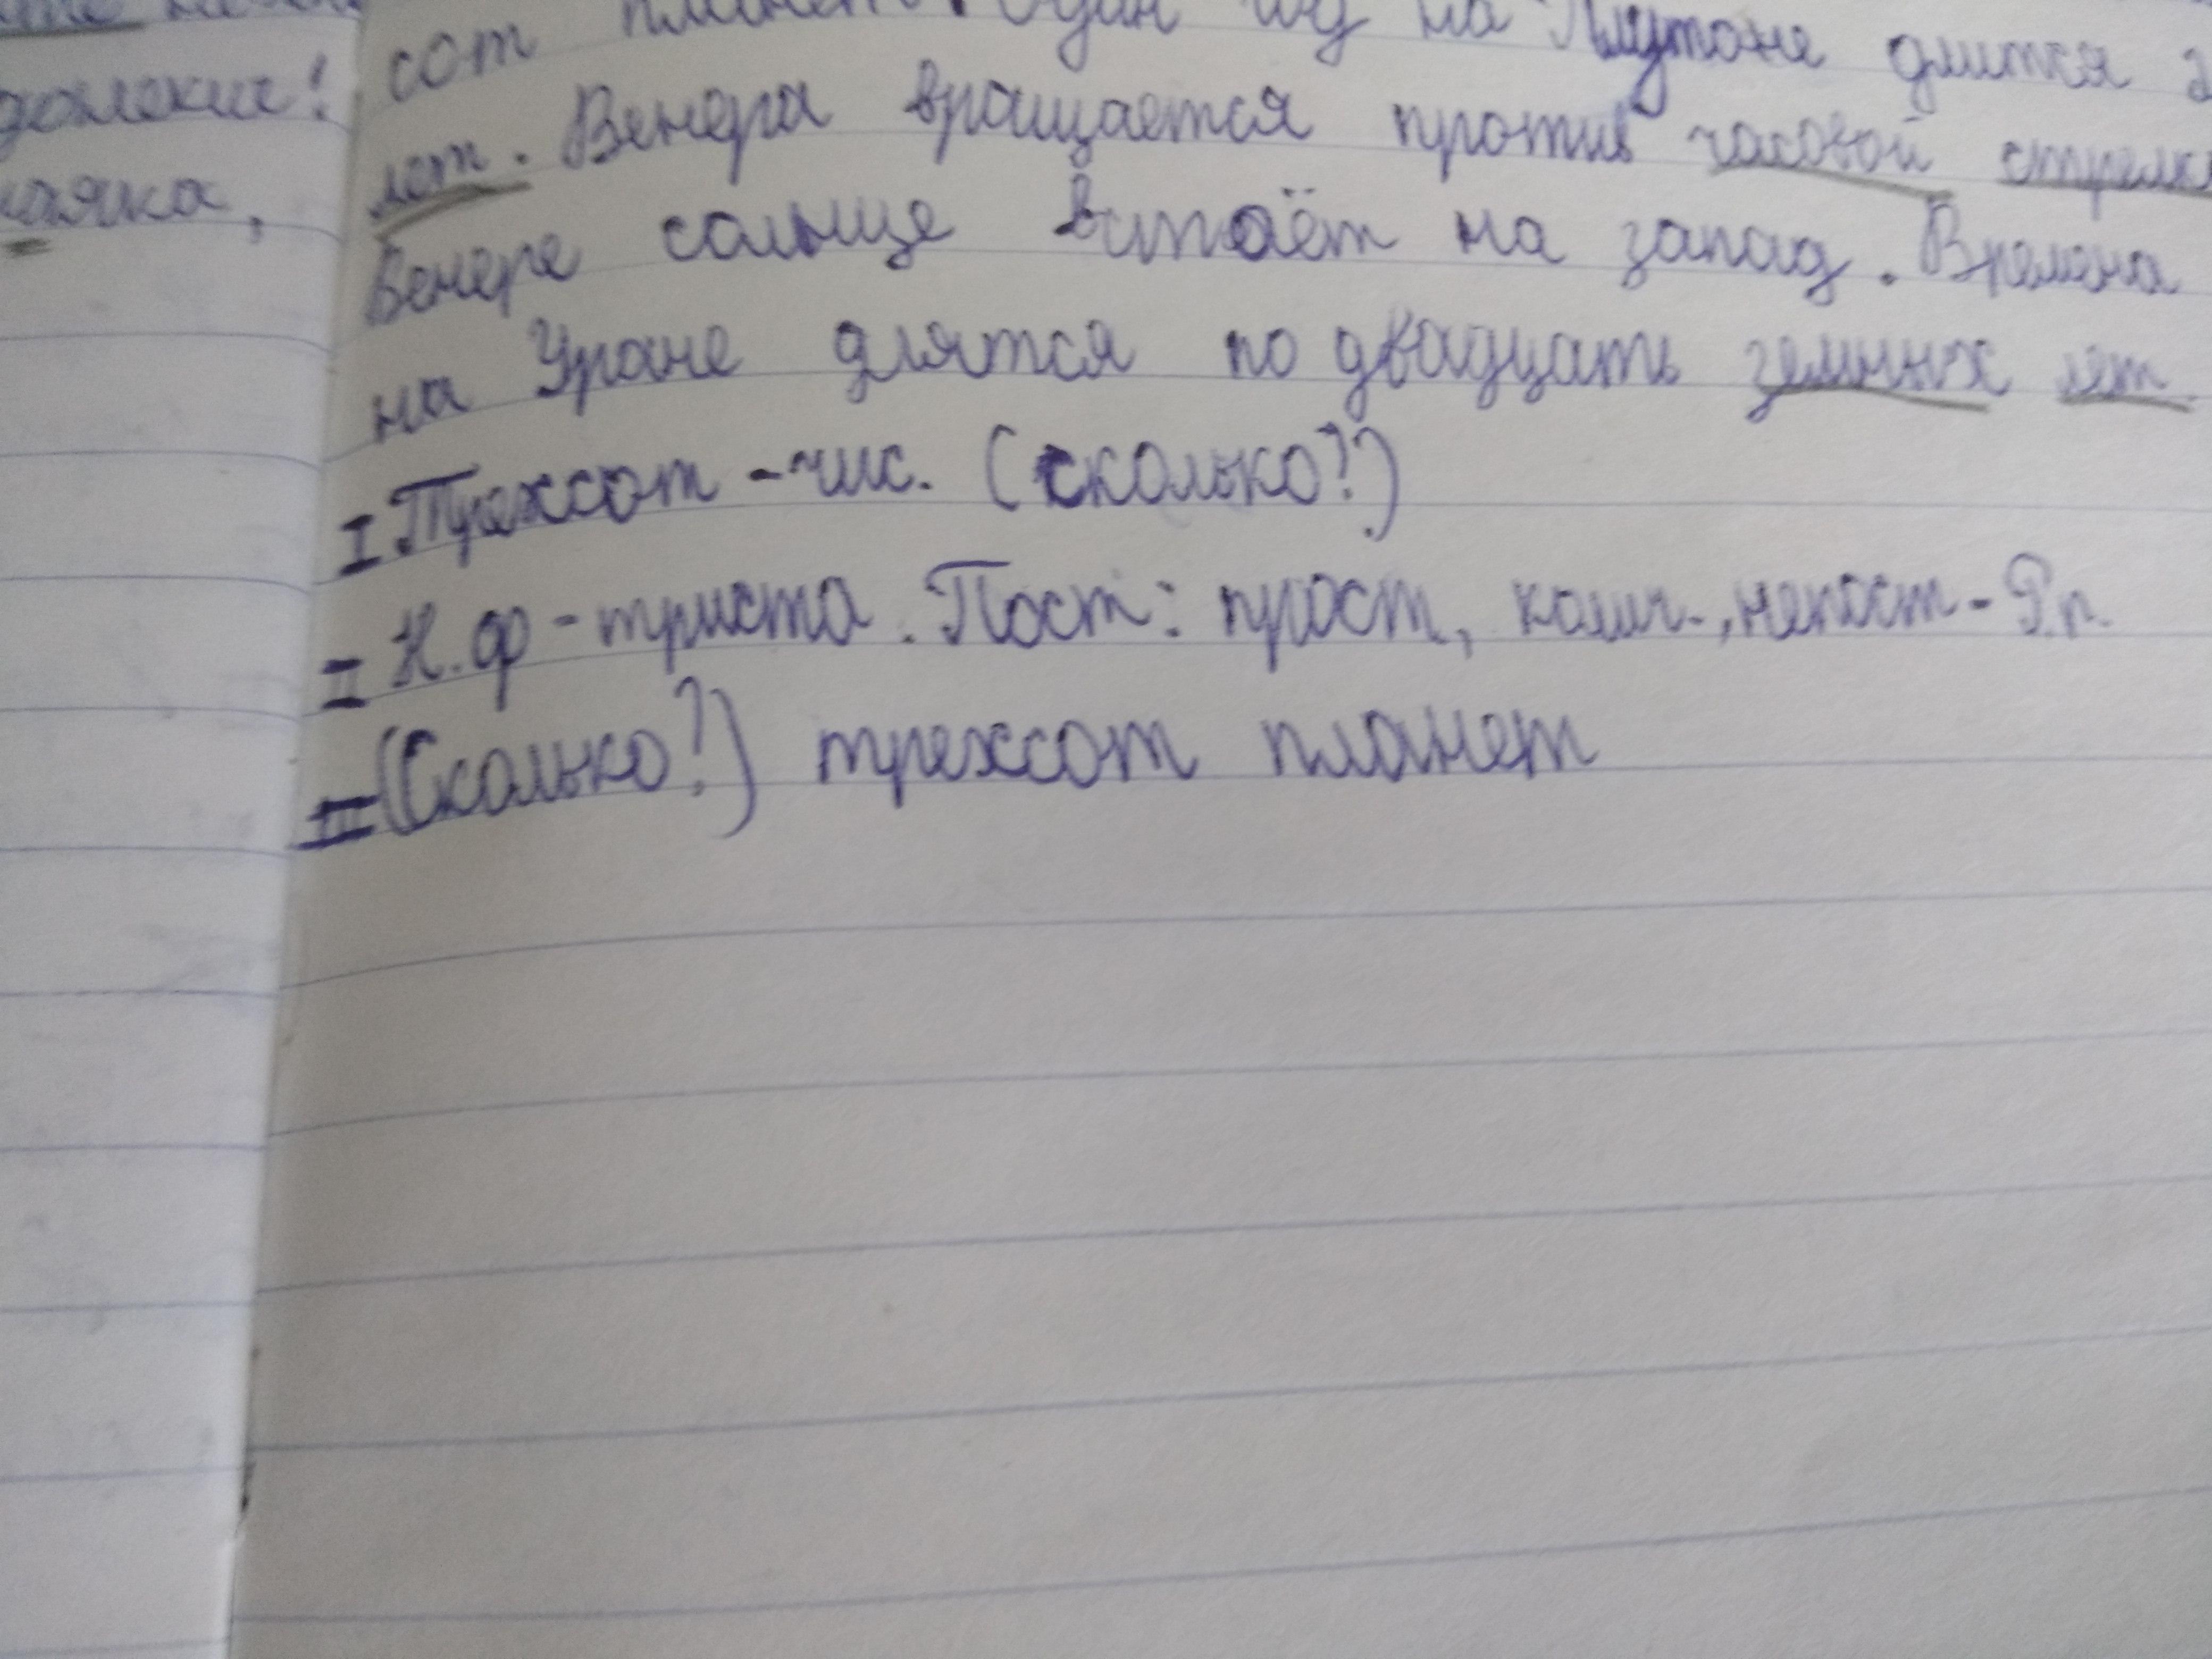 далекие!
маяка,
сот планет. Один год на Плутоне длится
лет. Венера вращается против часовой стрелки
Венере солнце встаёт на запад. Времена
на Уране длятся по двадцать земных лет
I Трехсот - чис. (сколько?)
II Н.ф - триста. Пост: прост, колич., непост - Р.п.
III (Сколько?) трехсот планет